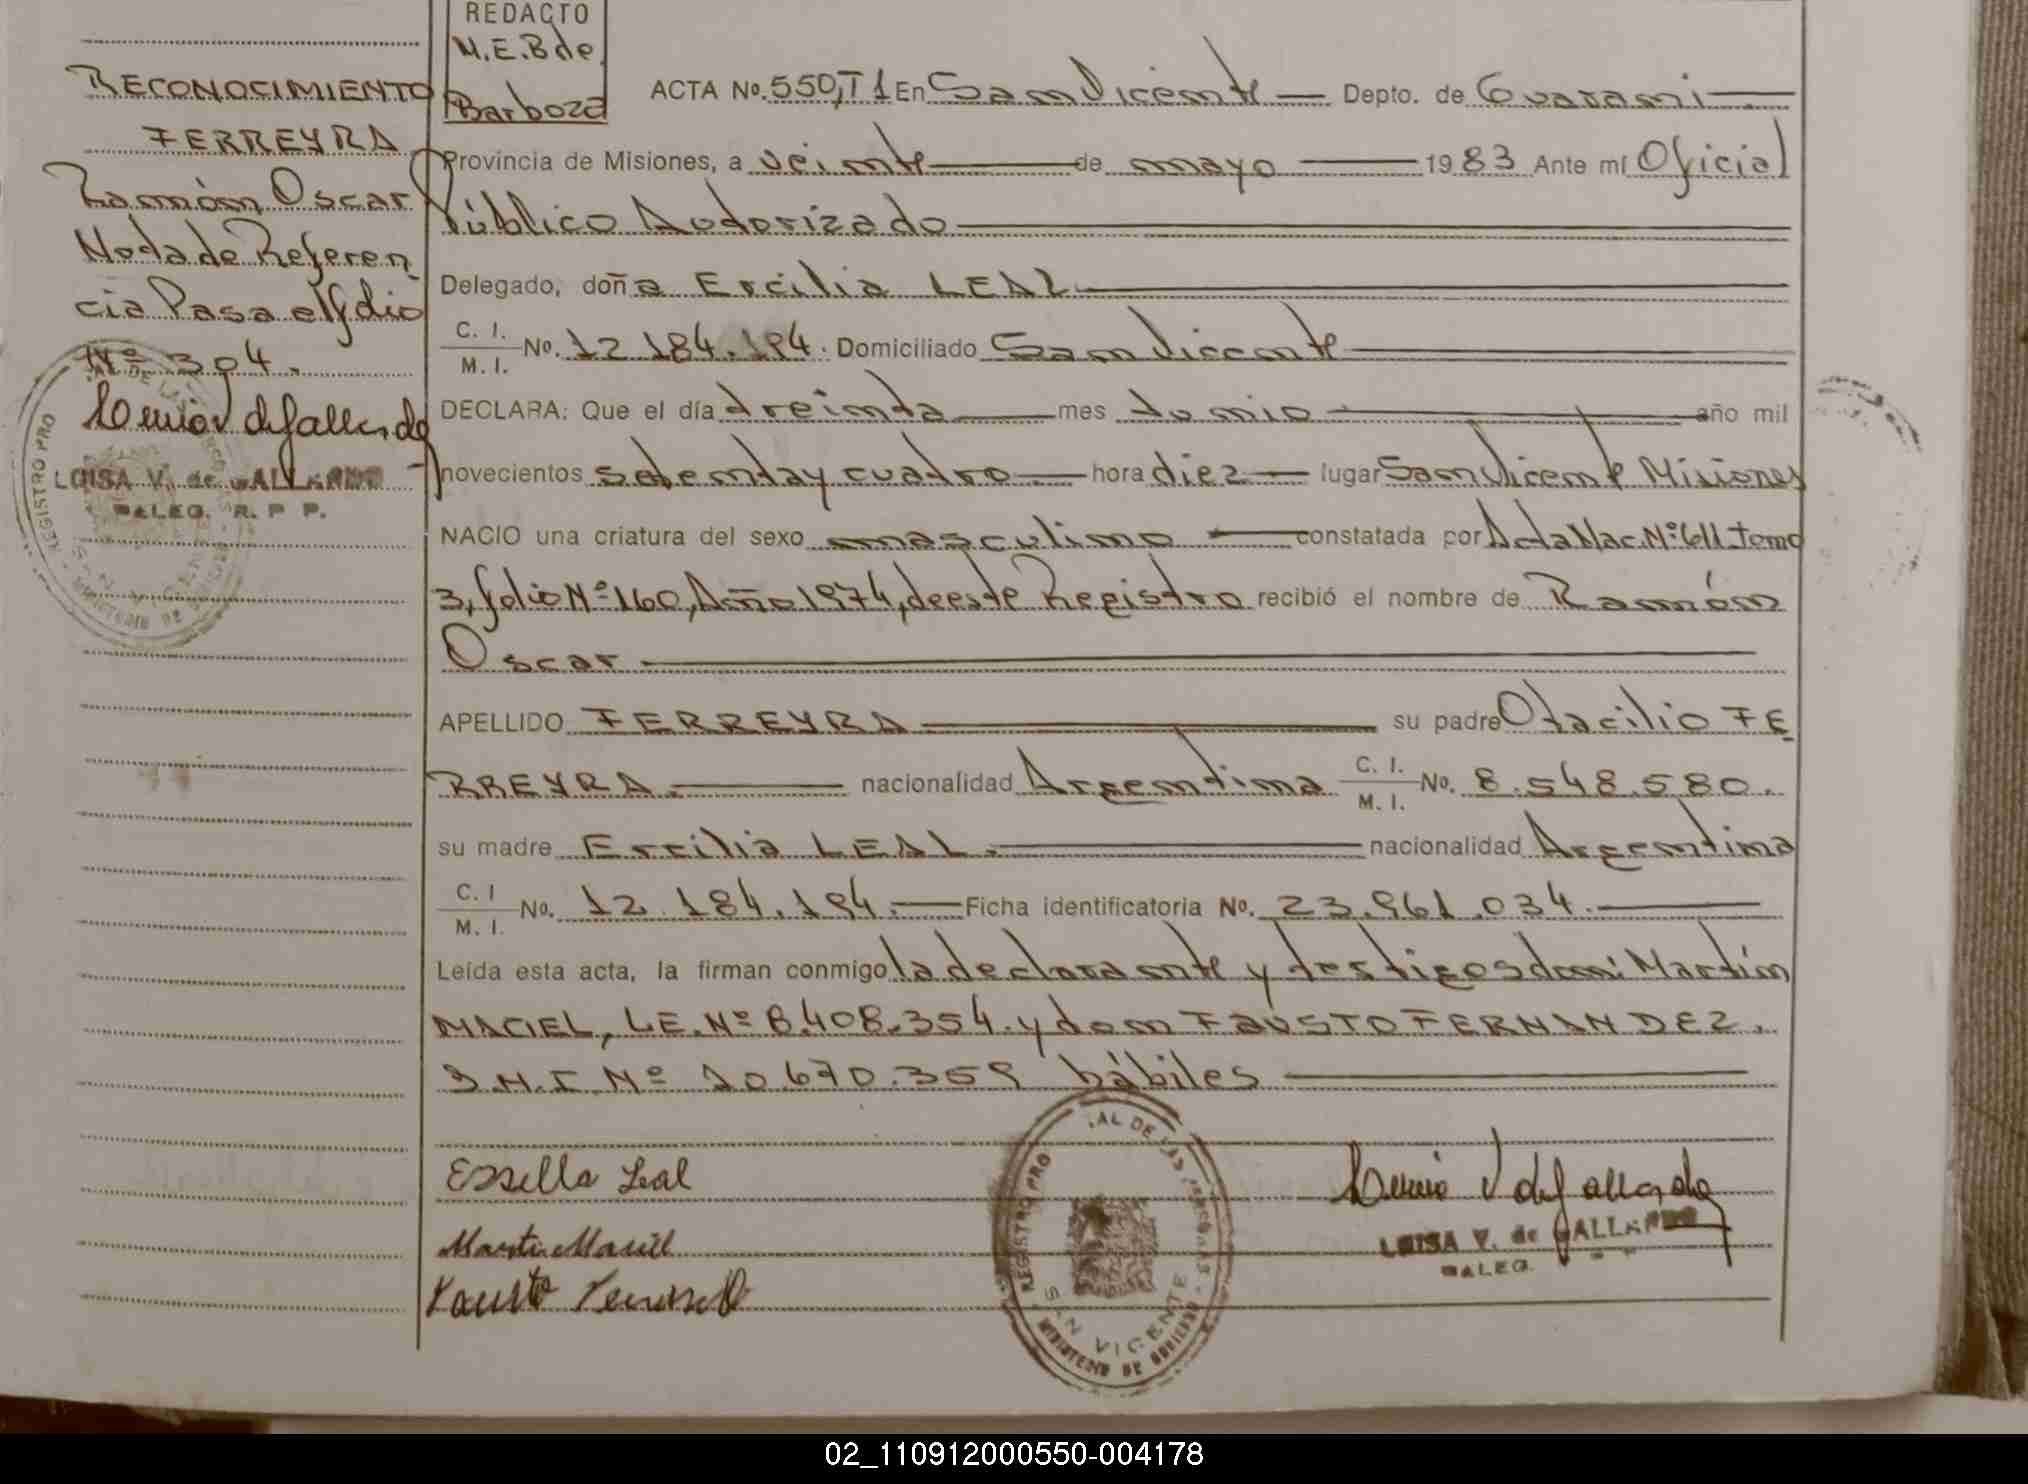 REDACTO
M.E.B de.
Barboza
RECONOCIMIENTO
FERREYRA
Ramón Oscar
Nota de Referen
cia Pasa el folio
Nº 304.
LUISA V. de GALLARDO
DALEG. R. P. P.
REGISTRO PRO
ACTA No. 550, T1 En San Vicente Depto. de Guarani
Provincia de Misiones, a veinte de mayo 1983 Ante mí Oficial
Público Autorizado
Delegado, doña Ercilia LEAL
C. I.
M. I. No. 12.184.194. Domiciliado San Vicente
DECLARA: Que el día treinta mes Junio año mil
novecientos setenta y cuatro hora diez lugar San Vicente Misiones
NACIO una criatura del sexo masculino constatada por Acta Nac. Nº 611 Tomo
3, folio Nº 160, Año 1974, de este Registro recibió el nombre de Ramón
Oscar
APELLIDO FERREYRA su padre Otacilio FE
RREYRA. nacionalidad Argentina C. I.
M. I. No. 8.548.580.
su madre Ercilia LEAL. nacionalidad Argentina
C. I
M. I. No. 12.184.194. Ficha identificatoria No. 23.961.034.
Leída esta acta, la firman conmigo la declarante y testigos don: Martín
MACIEL, L.E. Nº 8.408.354. y don FAUSTO FERNANDEZ.
D.N.I. Nº 10.670.359 hábiles
Essella Leal
LUISA V. de GALLARDO
DALEG.
REGISTRO PRO AL DE LAS PERSONAS
SAN VICENTE
MINISTERIO DE GOBIERNO
02_110912000550-004178